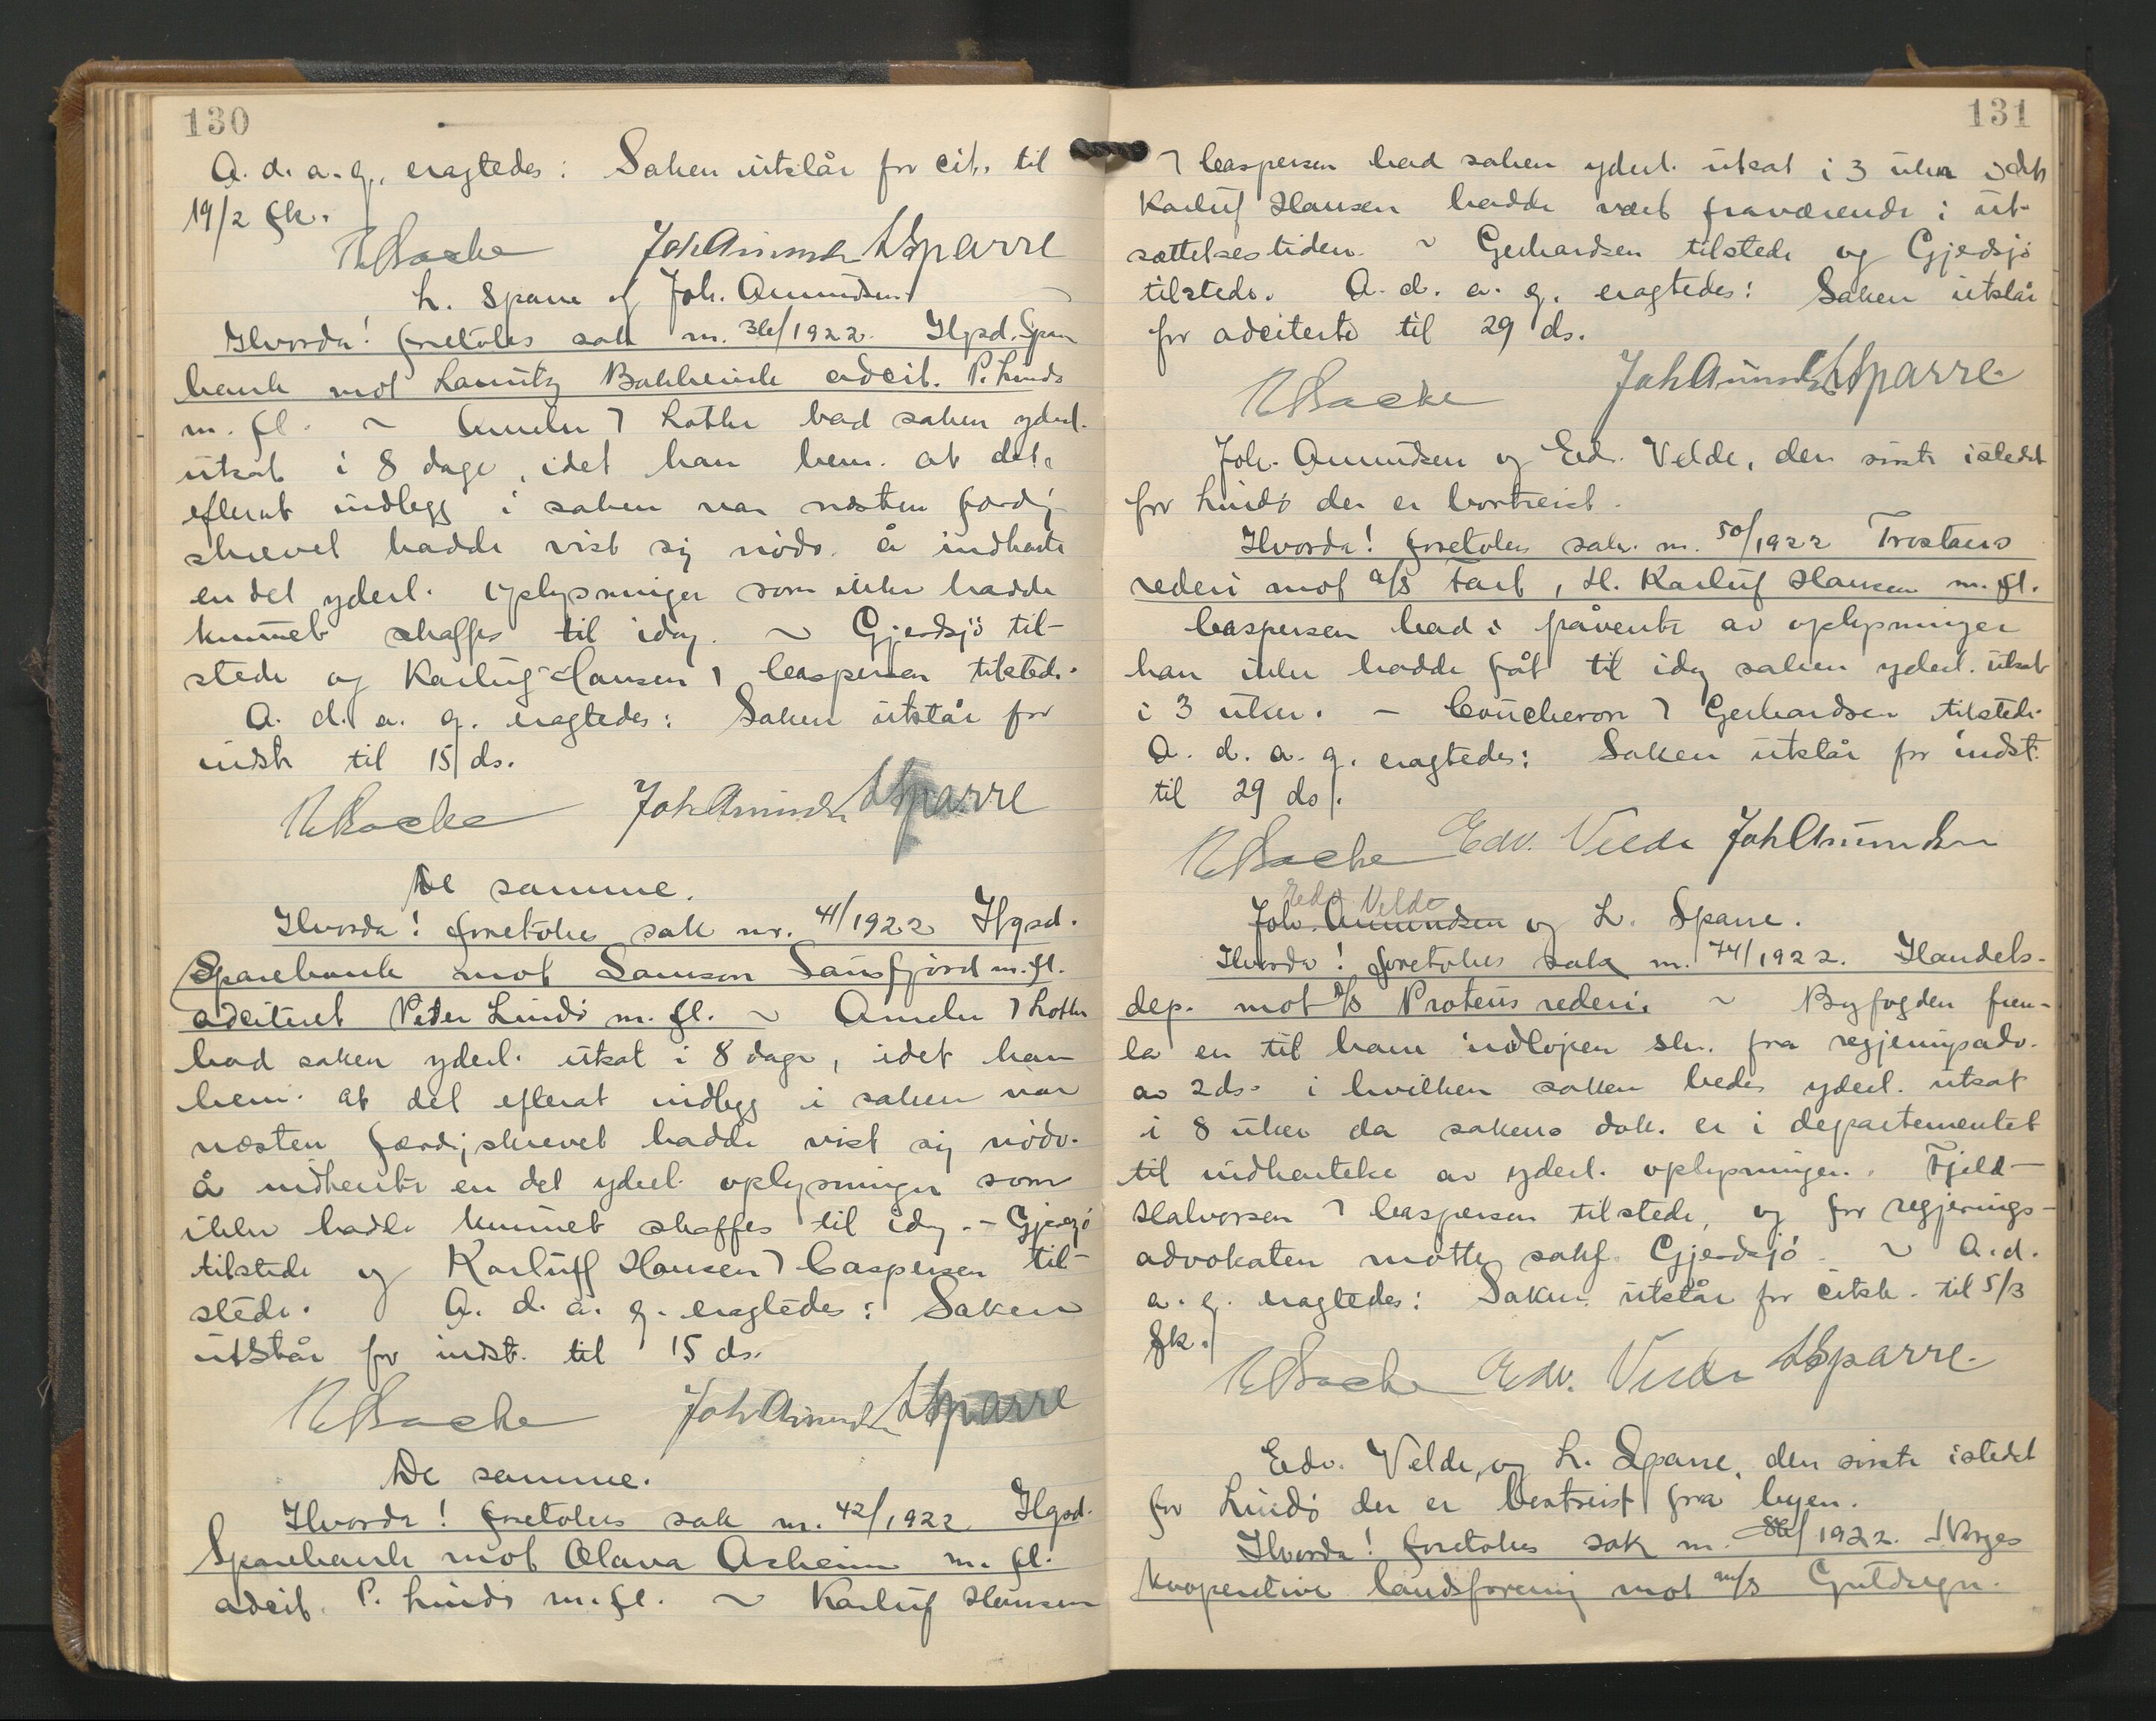 130
A. d. a. g. eragtedes: Saken utstår for cit. til
19/2 fk.
Joh Amundsen LSparre
L. Sparre og Joh. Amundsen
Hvorda! foretokes sak nr. 36/1922. Hgsd. Spare
bank mot Lauritz Bakkevik adcit. P. Lindø
m. fl. ~ Ameln ⁊ Lothe bad saken yderl.
utsat i 8 dage, idet han bem. at det,
efterat indlegg i saken var næsten færdig
skrevet hadde vist sig nødv. å indhente
en del yderl. oplysninger som ikke hadde
kunnet skaffes til idag. ~ Gjerdsjø til-
stede og Karluf Hansen ⁊ Caspersen tilstede.
A. d. a. g. eragtedes: Saken utstår for
indst til 15/ ds.
Joh Amundsen LSparre
De samme.
Hvorda! foretokes sak nr. 41/1922 Hgsd.
Sparebank mot Samson Sausfjord m. fl.
adciteret Peder Lindø m. fl. ~ Ameln ⁊ Lothe
bad saken yderl. utsat i 8 dage, idet han
bem. at det efterat indlegg i saken var
næsten færdigskrevet hadde vist sig nødv.
å indhente en del yderl. oplysninger som
ikke hadde kunnet skaffes til idag. - Gjerdsjø
tilstede og Karluff Hansen ⁊ Caspersen til-
stede. A. d. a. g. eragtedes: Saken
utstår for indst. til 15 ds.
Joh Amundsen LSparre
De samme.
Hvorda! foretokes sak nr. 42/1922 Hgsd.
Sparebank mot Olava Aasheim m. fl.
adcit. P. Lindø m. fl. ~ Karluf Hansen
131
⁊ Caspersen bad saken yderl. utsat i 3 uker idet
Karluf Hansen hadde vært fraværende i ut-
sættelsestiden. ~ Gerhardsen tilstede og Gjerdsjø
tilstede. A. d. a. g. eragtedes: Saken utstår
for adciterte til 29 ds.
Joh Amundsen LSparre
Joh. Amundsen og Edv. Velde, den siste istedet
for Lindø der er bortreist.
Hvorda! foretokes sak nr. 50/1922 Trostans
rederi mot a/s Fart, H. Karluf Hansen m. fl.
Caspersen bad i påvente av oplysninger
han ikke hadde fåt til idag saken yderl. utsat
i 3 uker. - Coucheron ⁊ Gerhardsen tilstede.
A. d. a. g. eragtedes: Saken utstår for indst.
til 29 ds/.
Edv. Velde Joh Amundsen
Edv. Velde
Joh. Amundsen og L. Sparre.
Hvorda! foretokes sak nr. 74/1922. Handels-
dep. mot a/s Proteus rederi. ~ Byfogden frem-
la en til ham indløpen skr. fra regjeringsadv.
av 2 ds. i hvilken saken bedes yderl. utsat
i 8 uker da sakens dok. er i departementet
til indhentelse av yderl. oplysninger. Fjeld-
Halvorsen ⁊ Caspersen tilstede, og for regjerings-
advokaten møtte sakf. Gjerdsjø. ~ A. d.
a. g. eragtedes: Saken utstår for citsk. til 5/3
fk./
Edv. Velde LSparre.
Edv. Velde, og L. Sparre, den siste istedet
for Lindø der er bortreist fra byen.
Hvorda! foretokes sak nr. 86/1922. Norges
kooperative landsforening mot m/s Guldregn.